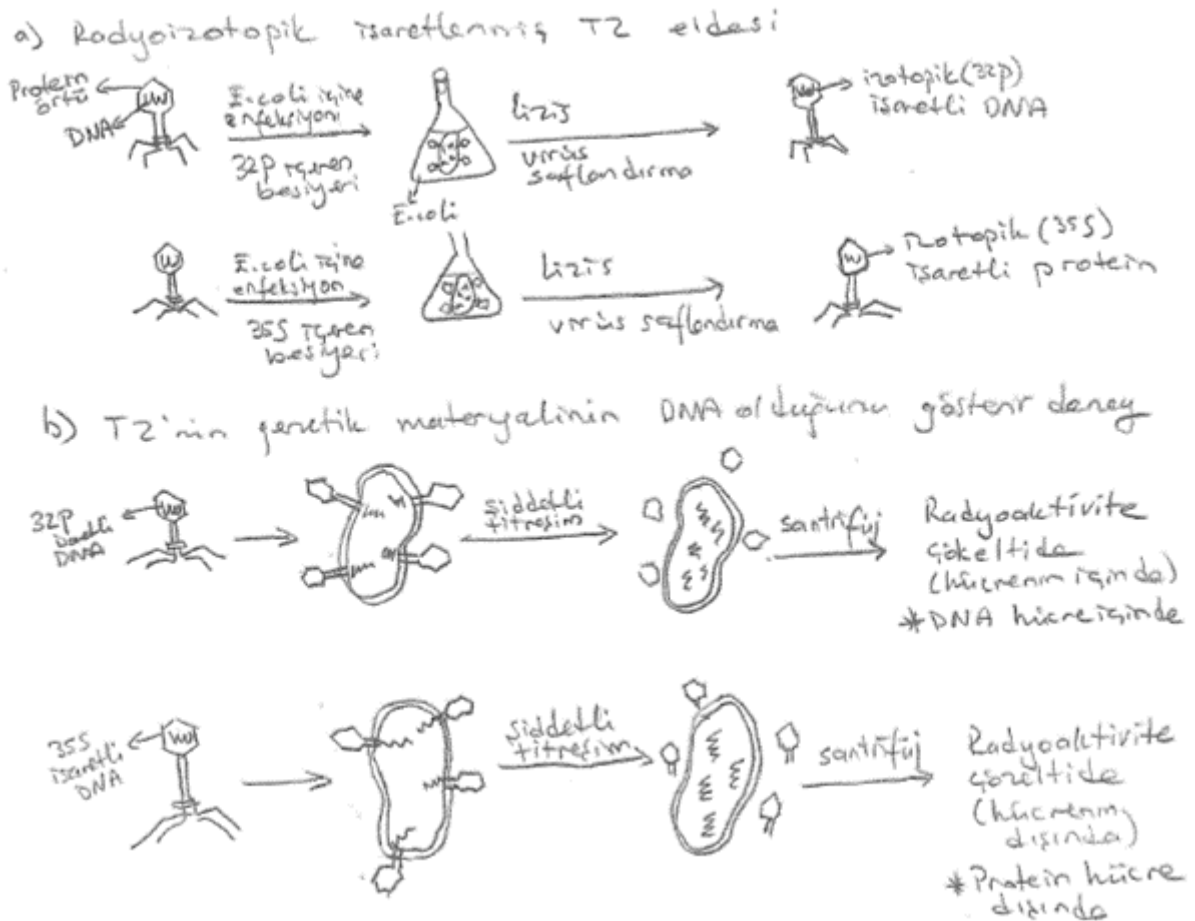 a) Radyoizotopik işaretlenmiş T2 eldesi
Protein
örtü
DNA
E.coli içine
enfeksiyon
32P içeren
besiyeri
E.coli
lizis
virüs
saflandırma
izotopik (32P)
işaretli DNA
E.coli içine
enfeksiyon
35S içeren
besiyeri
Lizis
virüs saflandırma
izotopik (35S)
işaretli protein
b) T2'nin genetik materyalinin DNA olduğunu gösterir deney
32P
işaretli
DNA
şiddetli
titreşim
santrifüj
Radyoaktivite
çökeltide
(hücrenin içinde)
*DNA hücre içinde
35S
işaretli
DNA
şiddetli
titreşim
santrifüj
Radyoaktivite
çözeltide
(hücrenin
dışında)
*Protein hücre
dışında